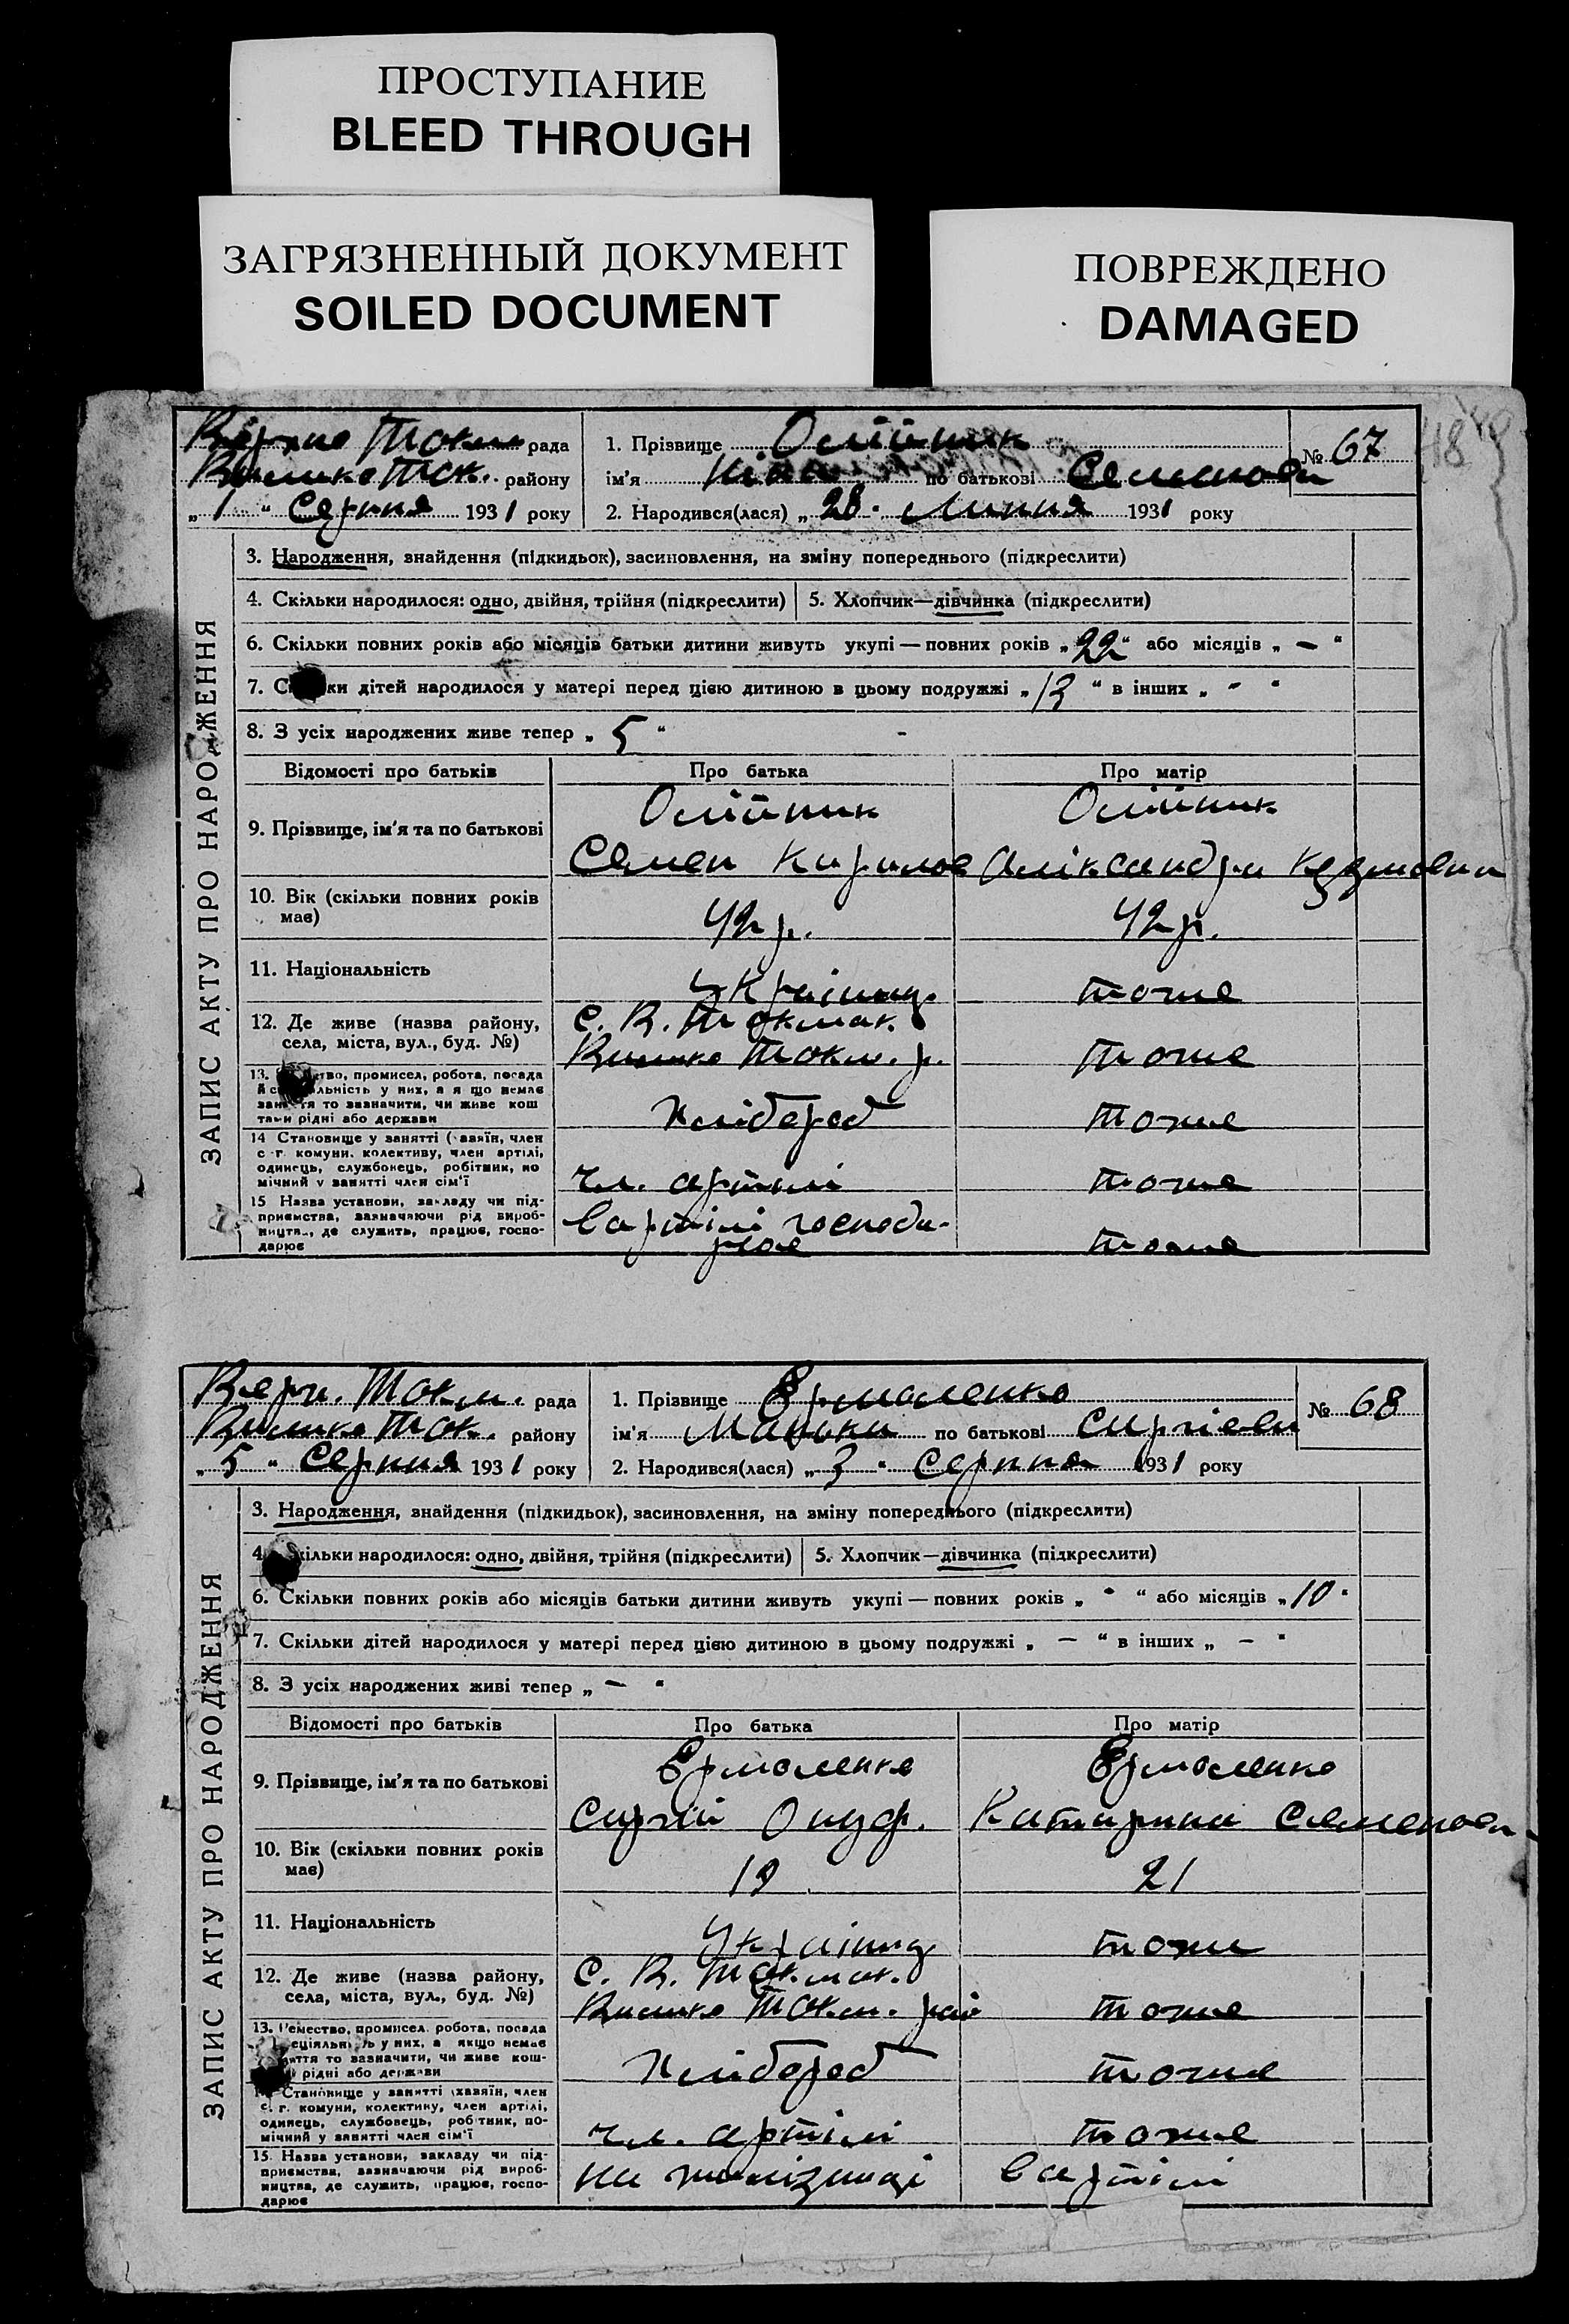 ПРОСТУПАНИЕ
BLEED THROUGH
ЗАГРЯЗНЕННЫЙ ДОКУМЕНТ
SOILED DOCUMENT
ПОВРЕЖДЕНО
DAMAGED
ЗАПИС АКТУ ПРО НАРОДЖЕННЯ
Токм рада
Токм. району
„ 1 “ Серпня 1931 року
1. Прізвище Олійник
№ 67
ім'я Ніна по батькові Семенов
2. Народився(лася) „ 28 “ Липня 1931 року
3. Народження, знайдення (підкидьок), засиновлення, на зміну попереднього (підкреслити)
4. Скільки народилося: одно, двійня, трійня (підкреслити) 5. Хлопчик—дівчинка (підкреслити)
6. Скільки повних років або місяців батьки дитини живуть укупі — повних років „ 22 “ або місяців „ — “
7. дітей народилося у матері перед цією дитиною в цьому подружжі „ 13 “ в інших „ - “
8. З усіх народжених живе тепер „ 5 “
Відомості про батьків Про батька Про матір
9. Прізвище, ім'я та по батькові Олійник Олійник
Семен Кирилов Александра
10. Вік (скільки повних років має) 42 р. 42 р.
11. Національність Україн. тоже
12. Де живе (назва району, села, міста, вул., буд. №) С. В. Токмак
Токм. р. тоже
13. промисел, робота, посада
у них, а я що немає
то зазначити, чи живе кош
рідні або держави
Хлібороб тоже
14 Становище у занятті ( член
с-г. комуни, колективу, член артілі,
одинець, службовець, робітник, по
мічний у занятті член сім'ї
чл. артілі тоже
15 Назва установи, закладу чи під-
приємства, зазначаючи рід вироб-
ництв., де служить, працює, госпо-
дарює
в артілі господа-
рює тоже
ЗАПИС АКТУ ПРО НАРОДЖЕННЯ
Верх. Токм. рада
Токм. району
„ 5 “ Серпня 1931 року
1. Прізвище Ермоленко
№ 68
ім'я по батькові Сиргіев
2. Народився(лася) „ 3 “ Серпня 1931 року
3. Народження, знайдення (підкидьок), засиновлення, на зміну попереднього (підкреслити)
4. Скільки народилося: одно, двійня, трійня (підкреслити) 5. Хлопчик—дівчинка (підкреслити)
6. Скільки повних років або місяців батьки дитини живуть укупі — повних років „ - “ або місяців „ 10 “
7. Скільки дітей народилося у матері перед цією дитиною в цьому подружжі „ — “ в інших „ — “
8. З усіх народжених живі тепер „ — “
Відомості про батьків Про батька Про матір
9. Прізвище, ім'я та по батькові Ермоленко Ермоленко
Сиргій Онуф. Катирина Семенов
10. Вік (скільки повних років має) 19 21
11. Національність Україн. тоже
12. Де живе (назва району, села, міста, вул., буд. №) С. В. Токмак.
Токм. рай тоже
13. Ремество, промисел, робота, посада
у них, а якщо немає
то зазначити, чи живе кош-
рідні або держави
Хлібороб тоже
Становище у занятті (хазяїн, член
с. г. комуни, колективу, член артілі,
одинець, службовець, робітник, по-
мічний у занятті член сім'ї
чл. артілі тоже
15. Назва установи, закладу чи під-
приємства, зазначаючи рід вироб-
ництва, де служить, працює, госпо-
дарює
на в артілі